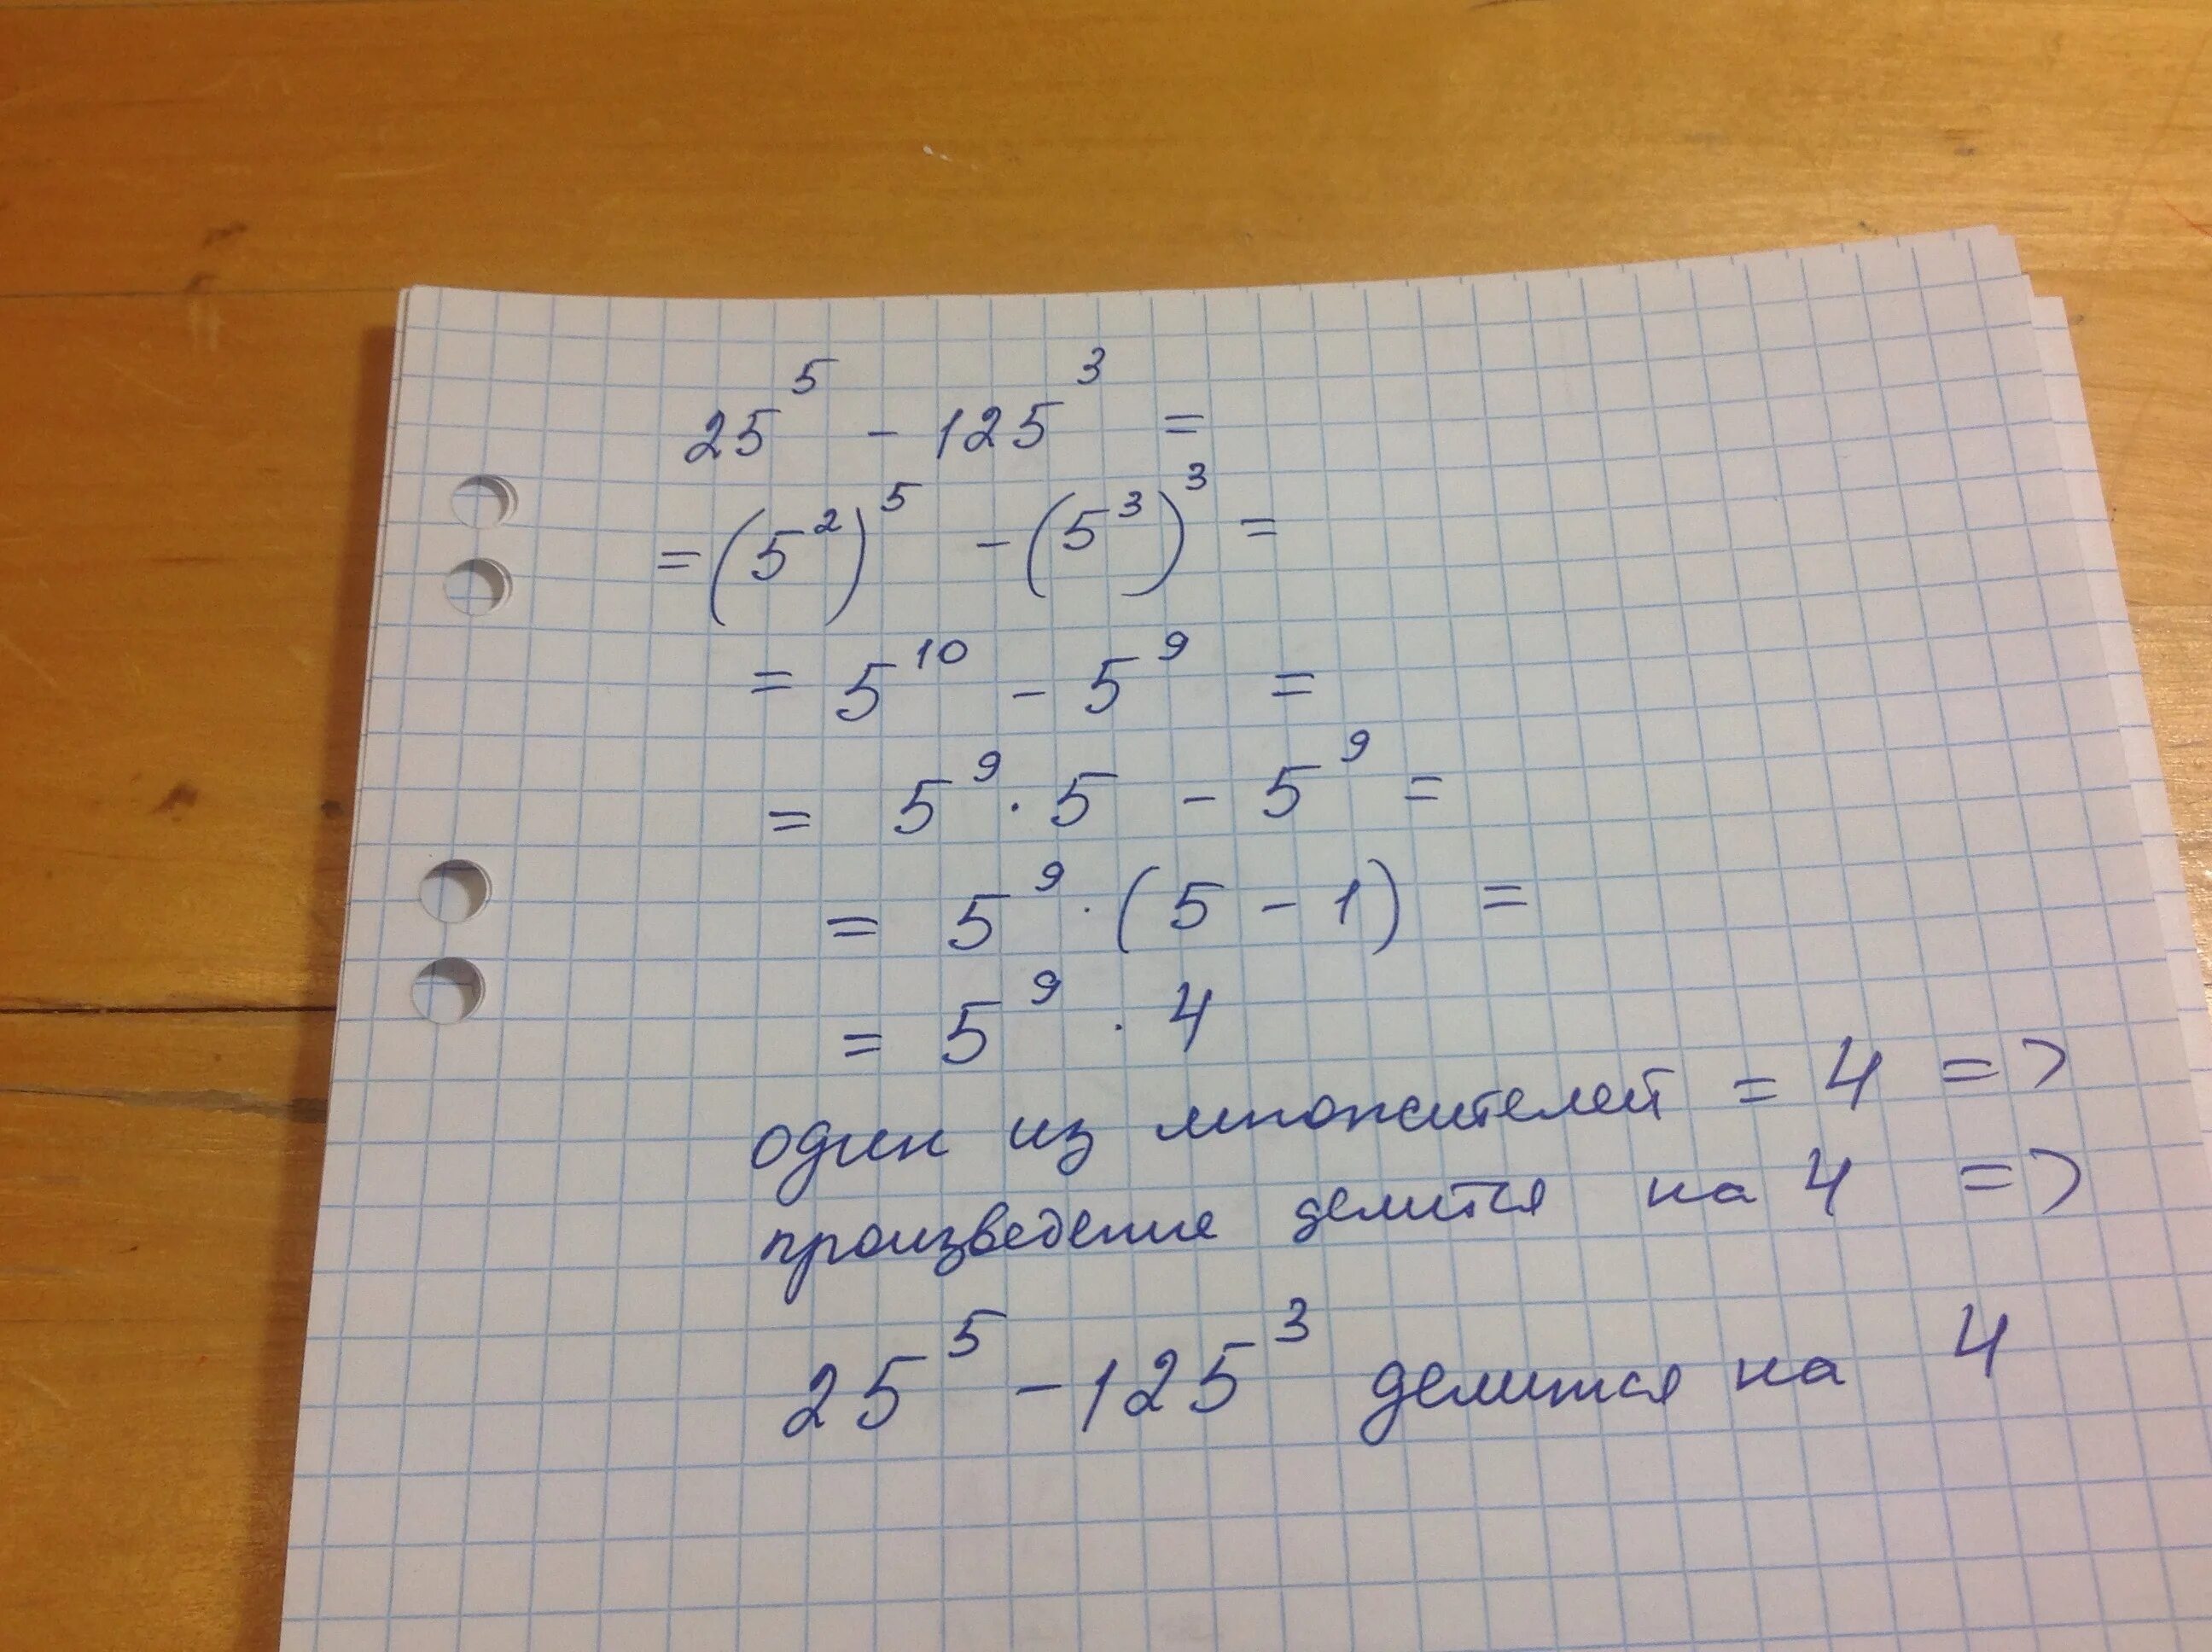 25⁵ - 125³ =
= (5²)⁵ - (5³)³ =
= 5¹⁰ - 5⁹ =
= 5⁹ · 5 - 5⁹ =
= 5⁹ · (5 - 1) =
= 5⁹ · 4
один из множителей = 4 =>
произведение делится на 4 =>
25⁵ - 125³ делится на 4